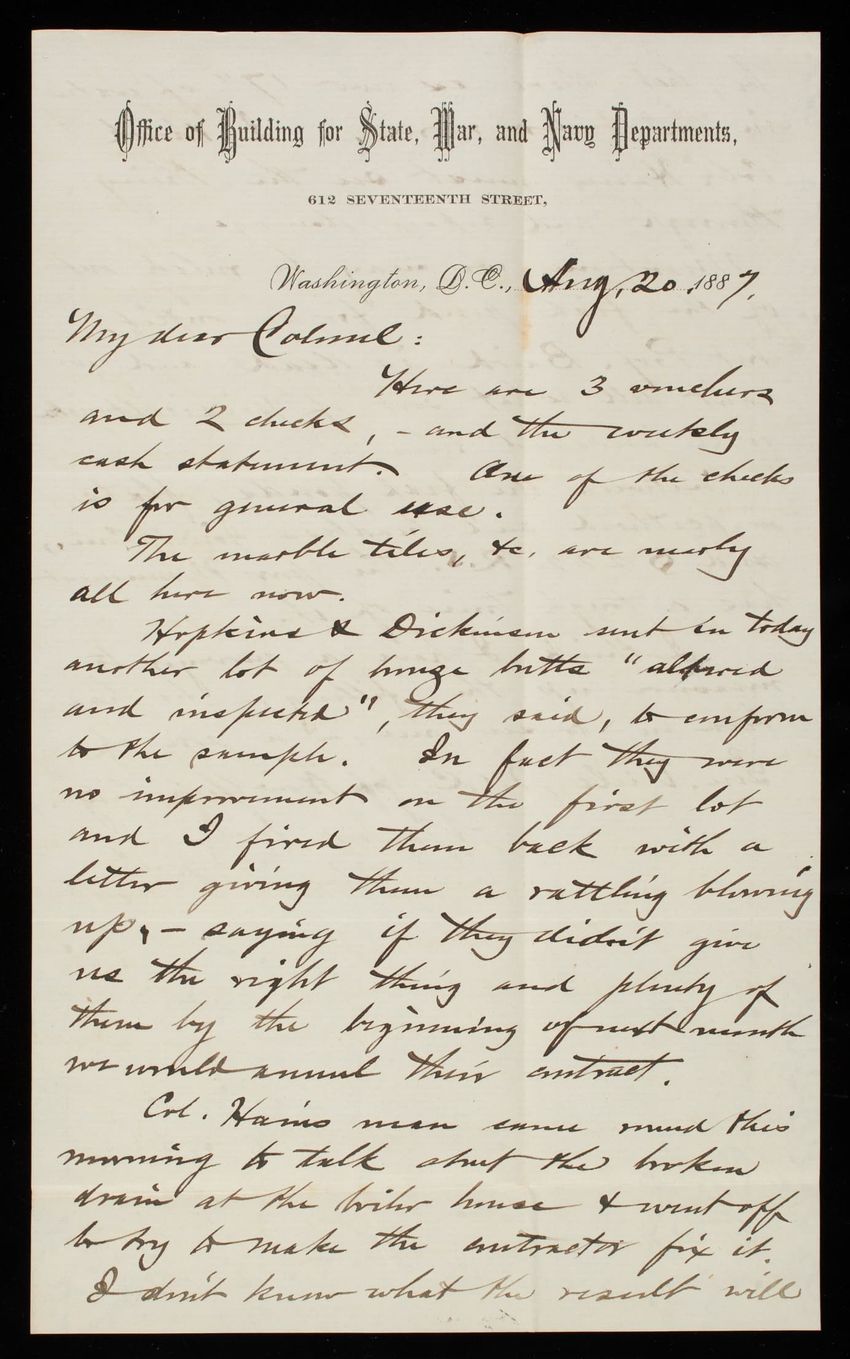 Office of Building for State, War, and Navy Departments,
612 SEVENTEENTH STREET,
Washington, D.C., Aug. 20. 1887.
My dear Colonel:
Here are 3 vouchers
and 2 checks, - and the weekly
cash statement. One of the checks
is for general use.
The marble tiles, &c. are nearly
all here now.
Hopkins & Dickinson sent in today
another lot of bronze butts "altered
and inspected", they said, to conform
to the sample. In fact they were
no improvement on the first lot
and I fired them back with a
letter giving them a rattling blowing
up, - saying if they didn't give
us the right thing and plenty of
them by the beginning of next month
we would annul their contract.
Col. Hains man came round this
morning to talk about the broken
drain at the boiler house & went off
to try to make the contractor fix it.
I don't know what the result will